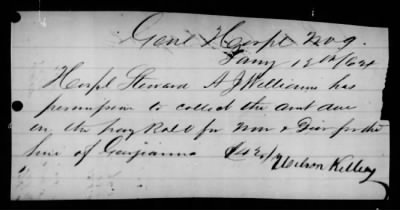 Genl Hospl No 9.
Jany 12th/64
Hospl Steward A J Williams has
permission to collect the amt due
on the pay Roll for Nov & Dec for the
hire of Georgianna
Wilson Kelley